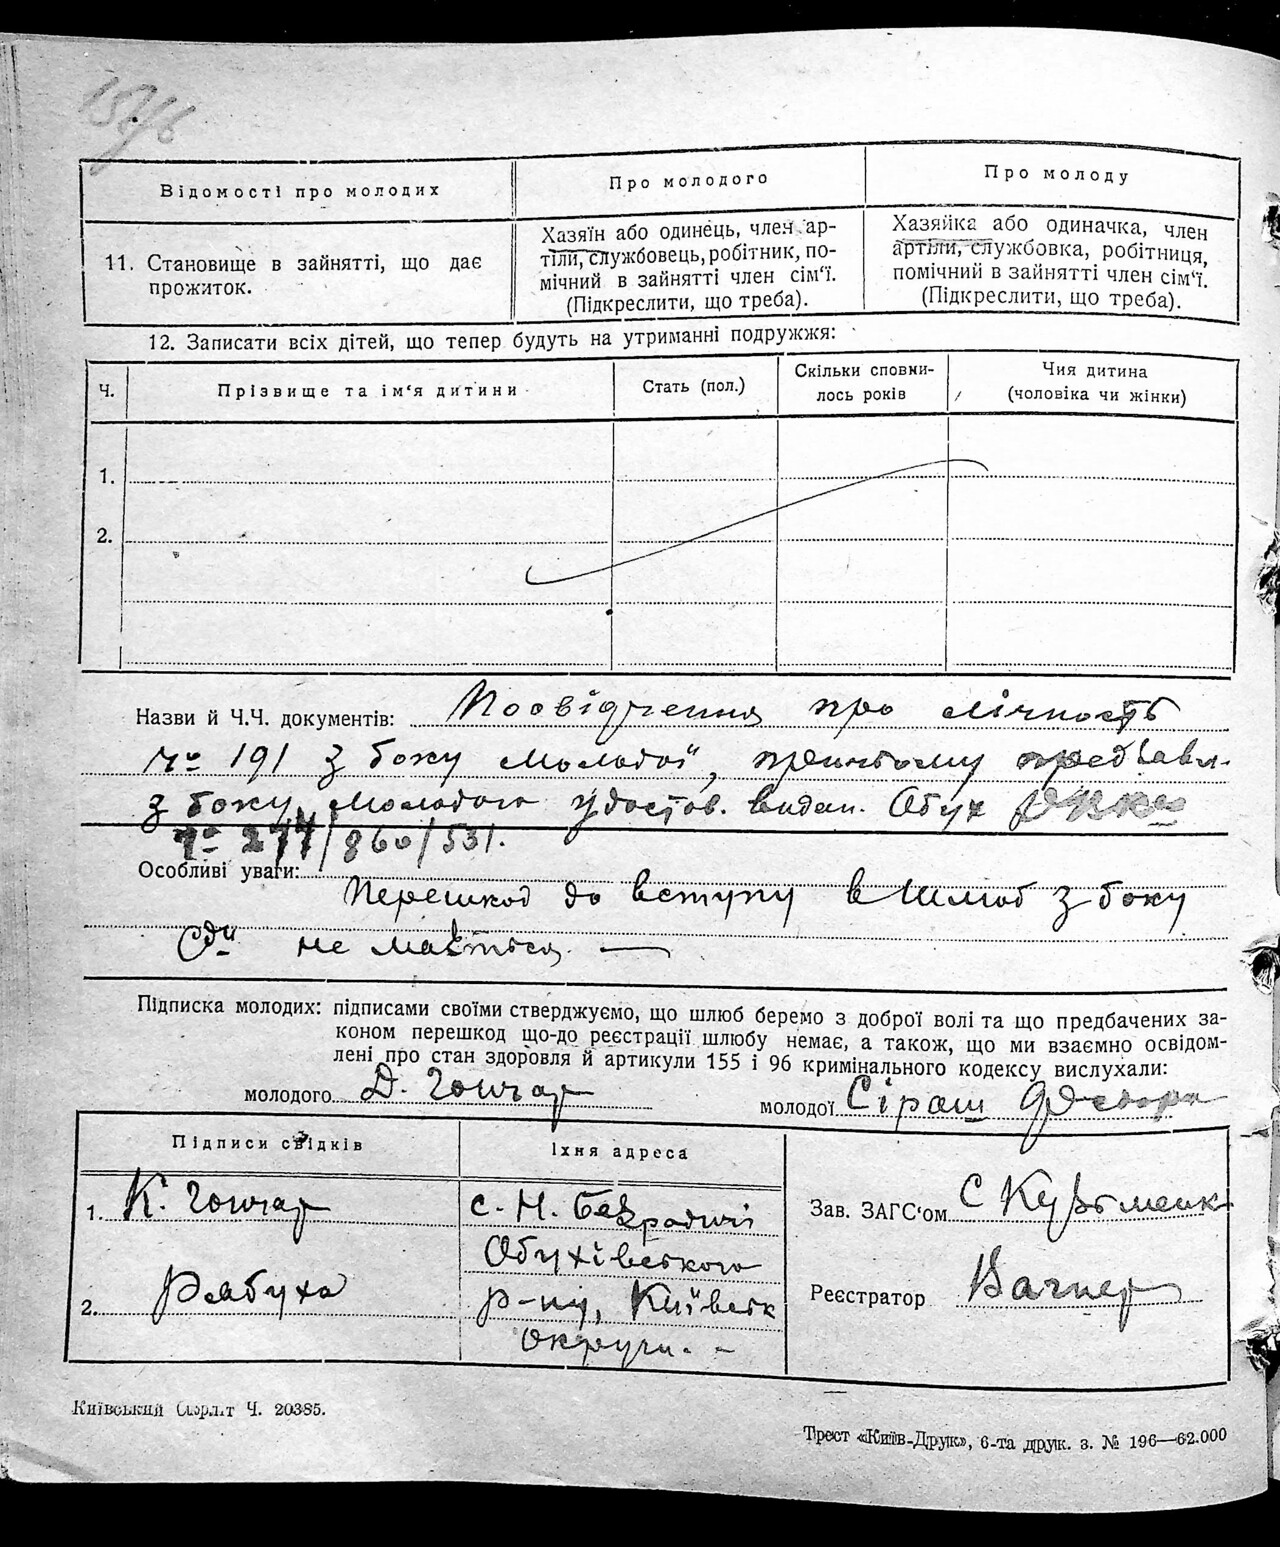 Відомості про молодих
Про молодого
Про молоду
11. Становище в зайнятті, що дає
прожиток.
Хазяїн або одинець, член ар-
тіли, службовець, робітник, по-
мічний в зайнятті член сім'ї.
(Підкреслити, що треба).
Хазяйка або одиначка, член
артіли, службовка, робітниця,
помічний в зайнятті член сім'ї.
(Підкреслити, що треба).
12. Записати всіх дітей, що тепер будуть на утриманні подружжя:
Ч.
Прізвище та ім'я дитини
Стать (пол.)
Скільки сповни-
лось років
Чия дитина
(чоловіка чи жінки)
1.
2.
Назви й Ч.Ч. документів: Посвідчення про лічность
№ 191 з боку молодої, пред'явл.
з боку молодого удостов. видан. Обух
№ 274/860/531.
Особливі уваги:
Перешкод до вступу в шлюб з боку
не мається. —
Підписка молодих: підписами своїми стверджуємо, що шлюб беремо з доброї волі та що предбачених за-
коном перешкод що-до реєстрації шлюбу немає, а також, що ми взаємно освідом-
лені про стан здоровля й артикули 155 і 96 кримінального кодексу вислухали:
молодого Д. Гончар
молодої Сіраш
Підписи свідків
Їхня адреса
1. К. Гончар
с. Н. Безрадичі
Обухівського
2. Рябуха
р-ну, Київськ
округи. -
Зав. ЗАГС'ом С Кузьменк
Реєстратор Вагнер
Київський Ч. 20385.
Трест «Київ-Друк», 6-та друк. з. № 196—62.000